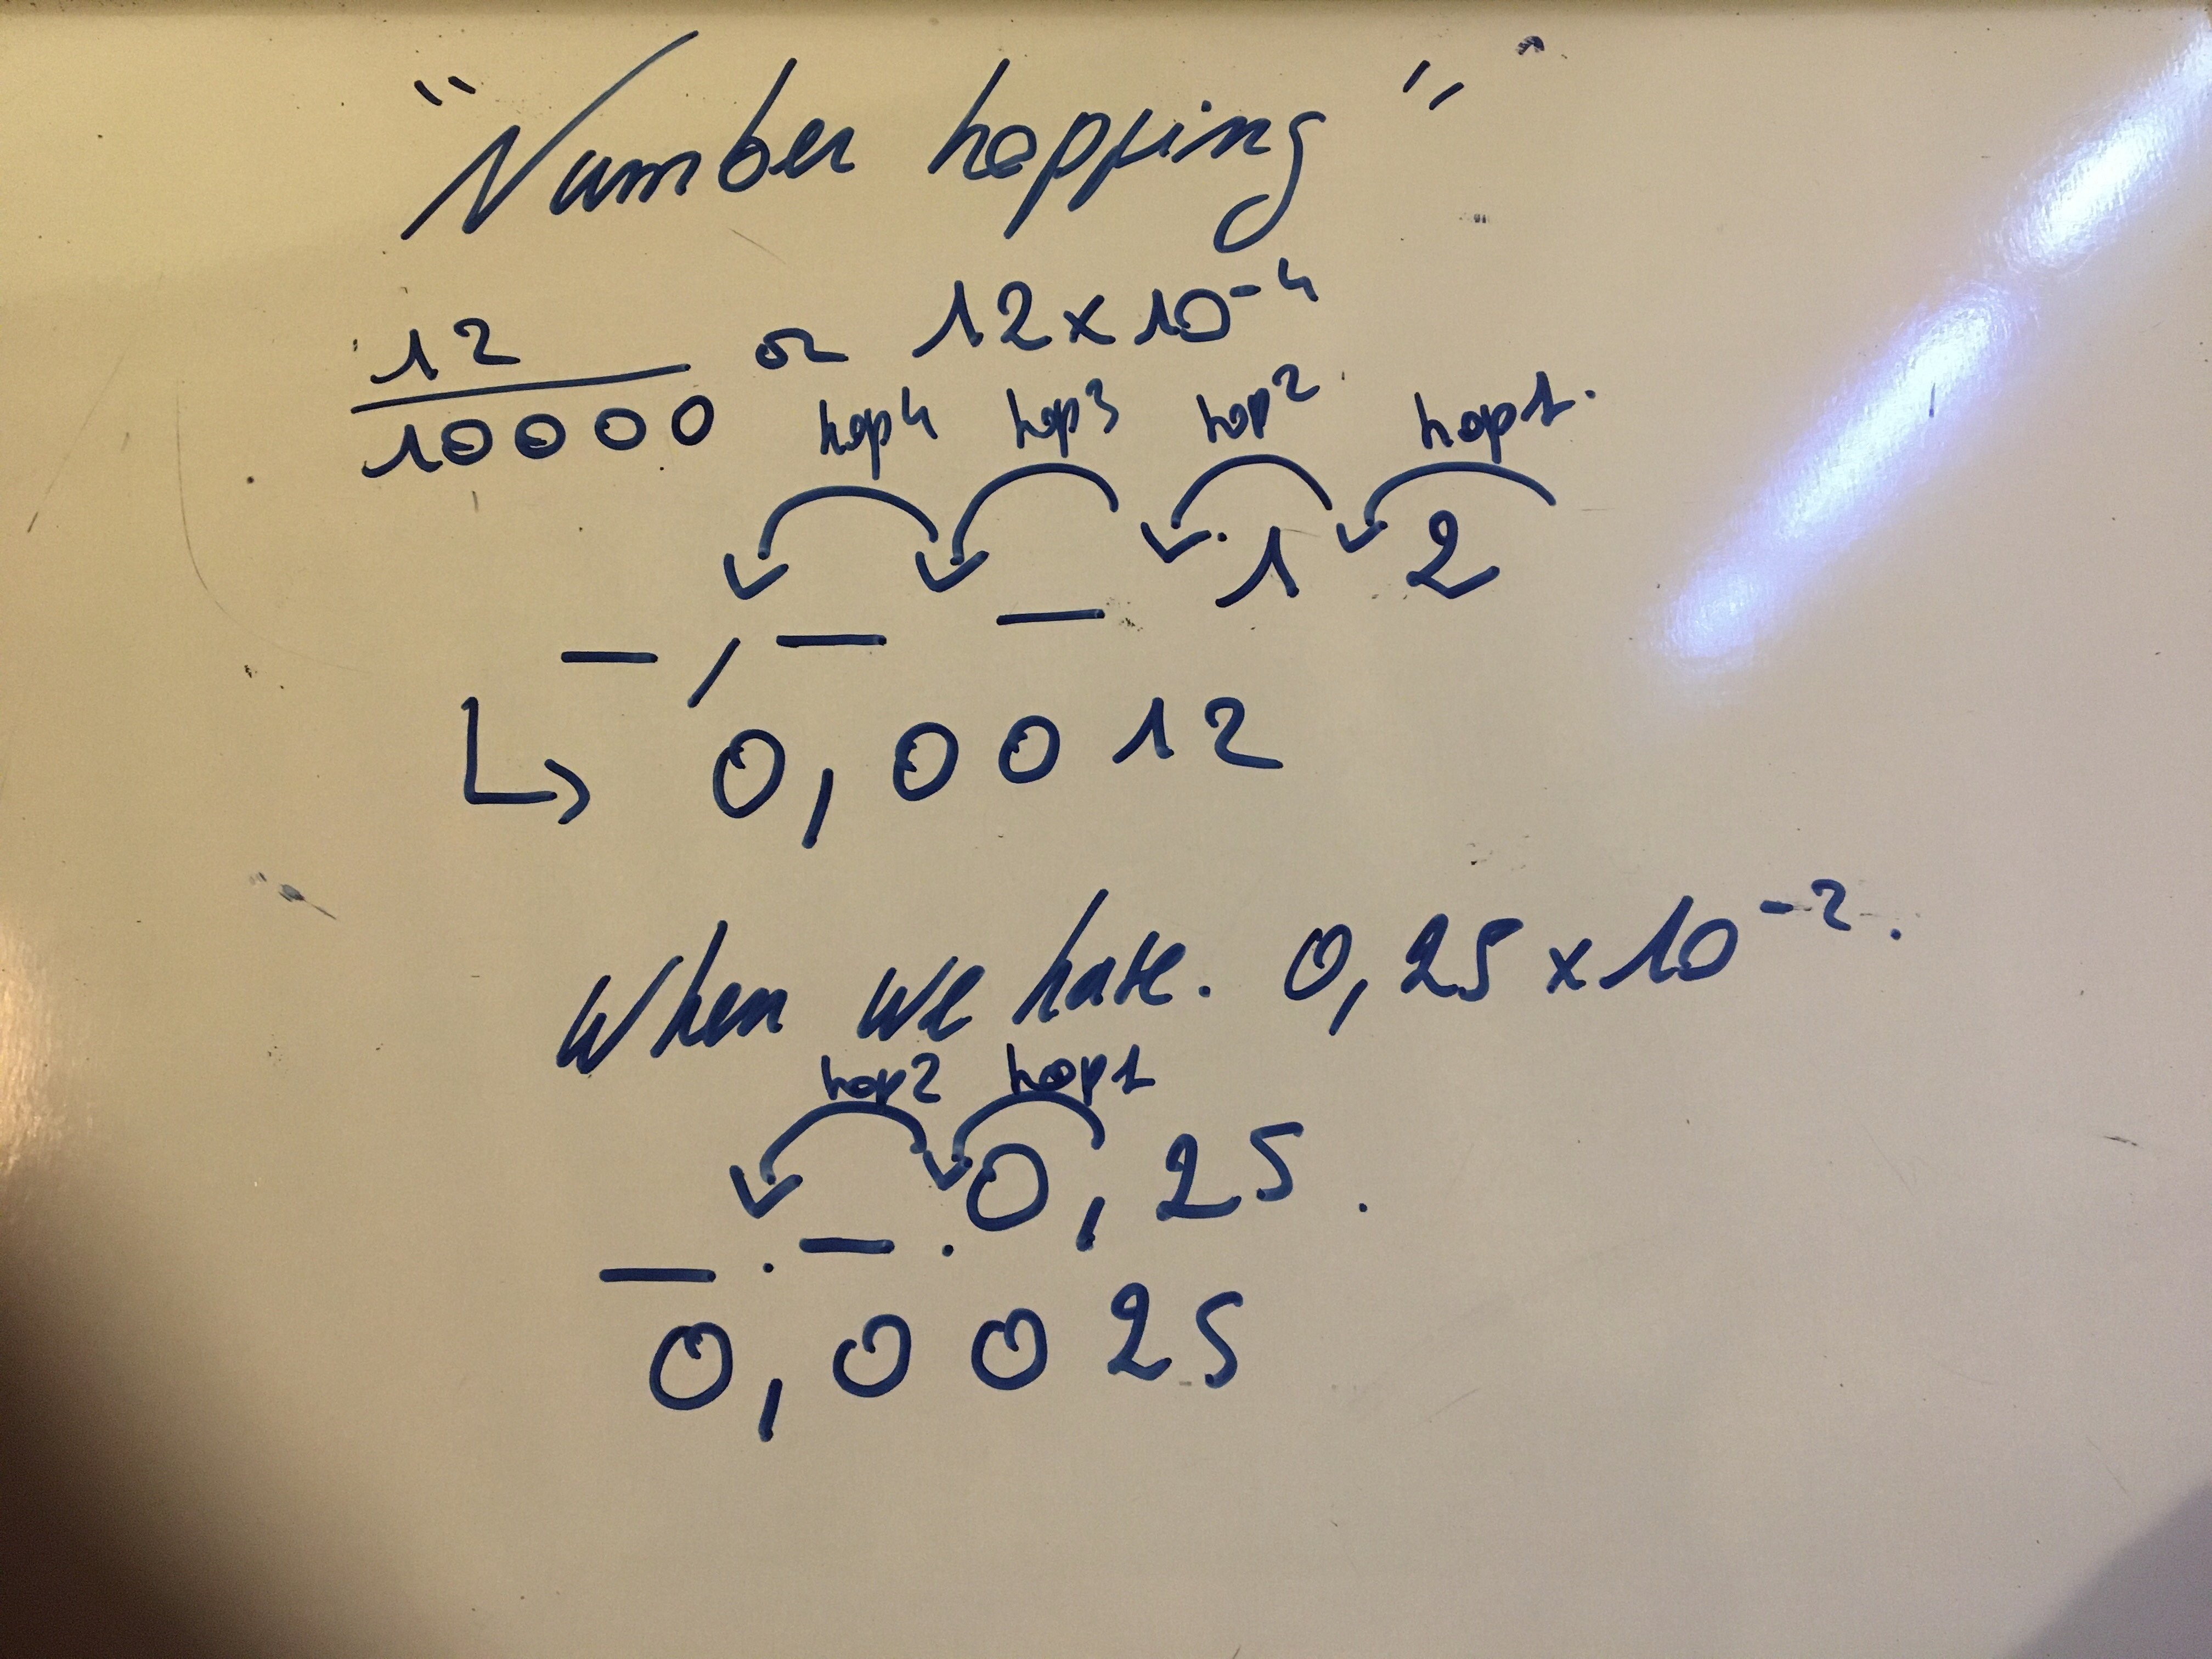 "Number hopping"
12
10000 or 12x10⁻⁴
hop4 hop3 hop2 hop1.
_ , _ _ 1 2
↳ 0,0012
When we have. 0,25x10⁻².
hop2 hop1
_ . _ . 0,25.
0,0025